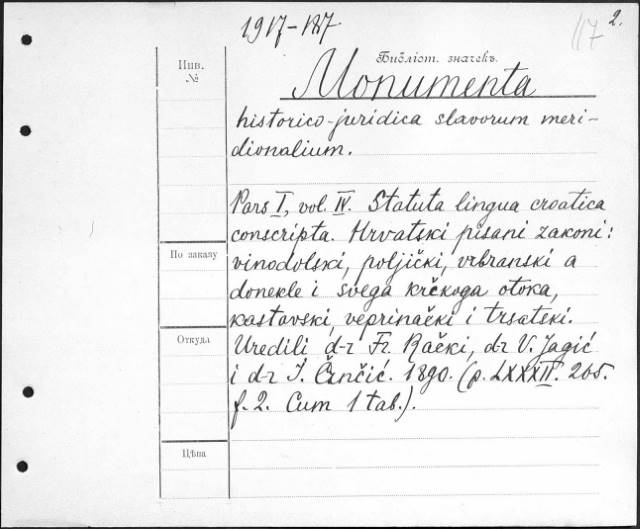 1917-187
117 2.
Библіот. значекъ.
Инв.
№
Monumenta
historico-juridica slavorum meri-
dionalium.
Pars I, vol. IV. Statuta lingua croatica
conscripta. Hrvatski pisani zakoni:
vinodolski, poljički, vrbranski a
donekle i svega krčkoga otoka,
kastavski, veprinački i trsatski.
Uredili d-r Fr. Rački, d-r V. Jagić
i d-r I. Črnčić. 1890. (p. LXXXII. 265.
f. 2. Cum 1 tab.).
По заказу
Откуда
Цѣна